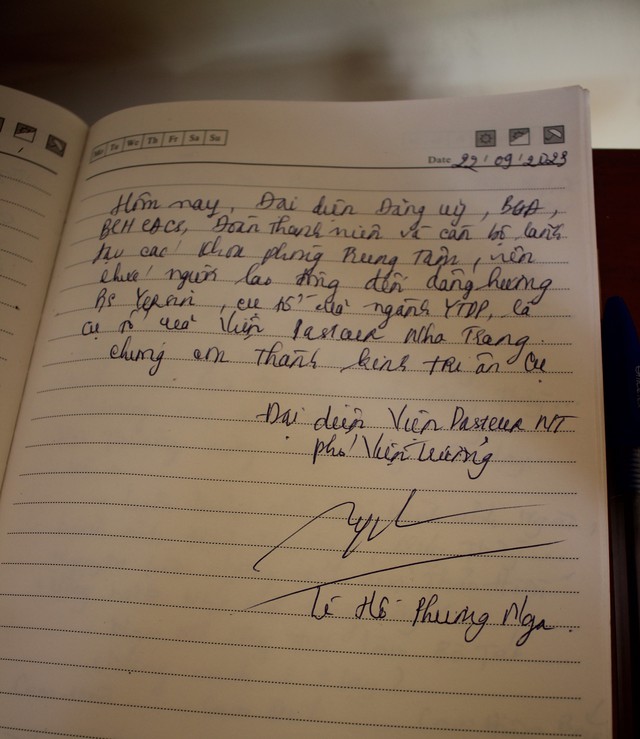 Mo Tu We Th Fr Sa Su
Date 22/09/2023
Hôm nay, Đại diện Đảng uỷ, BGĐ,
BCH CĐCS, Đoàn thanh niên và cán bộ lãnh
các khoa phòng Trung Tâm, viên
chức người lao động đến dâng hương
Bs Yersin, cụ tổ của ngành YTDP, là
cụ tổ của Viện Pasteur Nha Trang.
chúng em thành kính tri ân cụ
Đại diện Viện Pasteur NT
phó Viện Trưởng
Lê Hồ Phương Nga.